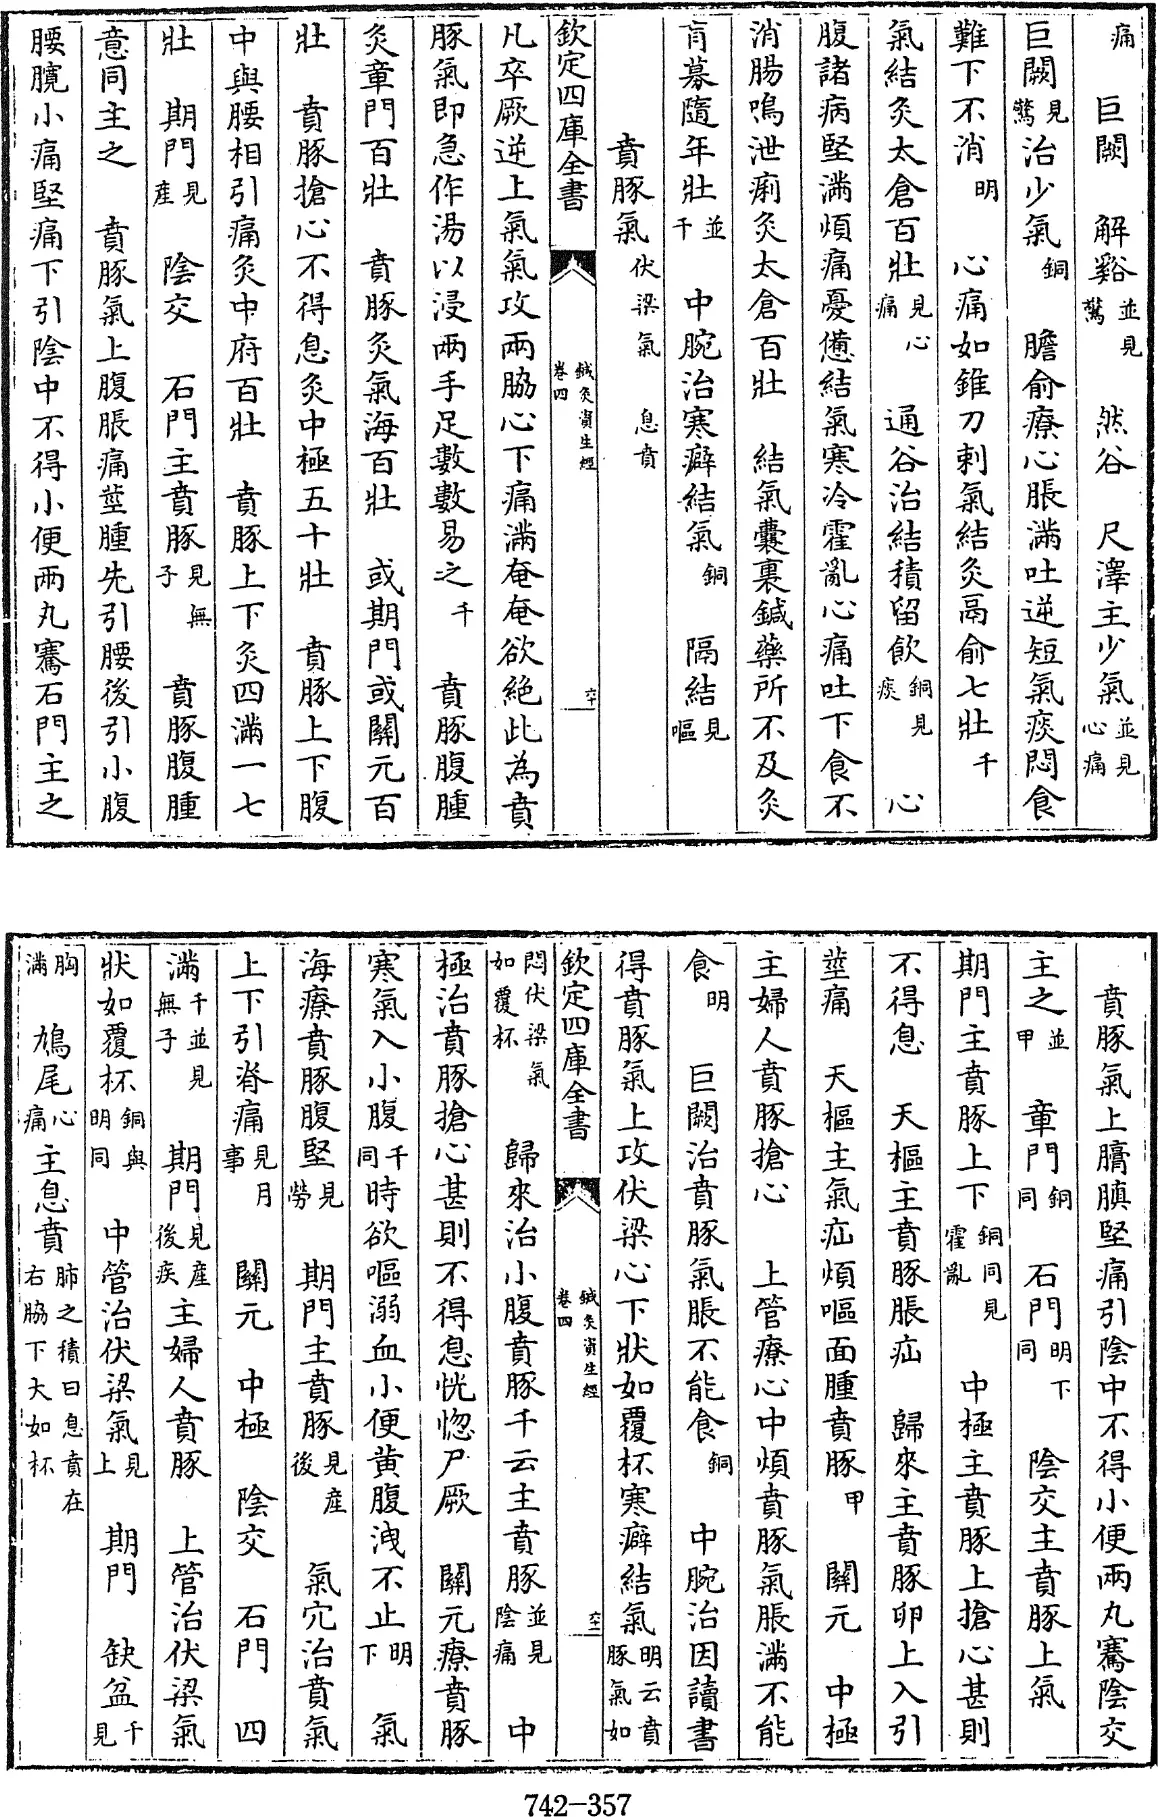 痛　巨闕　解谿並見驚　然谷　尺澤主少氣並見心痛
巨闕見驚治少氣銅　膽俞療心脹滿吐逆短氣痰悶食
難下不消明　心痛如錐刀刺氣結灸鬲俞七壯千
氣結灸太倉百壯見心痛　通谷治結積留飲銅見痰　心
腹諸病堅滿煩痛憂憊結氣寒冷霍亂心痛吐下食不
消腸鳴泄痢灸太倉百壯　結氣囊裏鍼藥所不及灸
肓募隨年壯並千　中腕治寒癖結氣銅　隔結見嘔
賁豚氣伏梁氣　息賁
欽定四庫全書　鍼灸資生經卷四　六十
凡卒厥逆上氣氣攻兩脇心下痛滿奄奄欲絶此為賁
豚氣即急作湯以浸兩手足數數易之千　賁豚腹腫
灸章門百壯　賁豚灸氣海百壯　或期門或關元百
壯　賁豚搶心不得息灸中極五十壯　賁豚上下腹
中與腰相引痛灸中府百壯　賁豚上下灸四滿一七
壯　期門見産　陰交　石門主賁豚見無子　賁豚腹腫
意同主之　賁豚氣上腹脹痛莖腫先引腰後引小腹
腰臗小痛堅痛下引陰中不得小便兩丸騫石門主之
賁豚氣上膹䐜堅痛引陰中不得小便兩丸騫陰交
主之並甲　章門銅同　石門明下同　陰交主賁豚上氣
期門主賁豚上下銅同見霍亂　中極主賁豚上搶心甚則
不得息　天樞主賁豚脹疝　歸來主賁豚卵上入引
莖痛　天樞主氣疝煩嘔面腫賁豚甲　關元　中極
主婦人賁豚搶心　上管療心中煩賁豚氣脹滿不能
食明　巨闕治賁豚氣脹不能食銅　中腕治因讀書
得賁豚氣上攻伏梁心下狀如覆杯寒癖結氣明云賁豚氣如
欽定四庫全書　鍼灸資生經卷四　六十一
悶伏梁氣如覆杯　歸來治小腹賁豚千云主賁豚並見陰痛　中
極治賁豚搶心甚則不得息恍惚尸厥　關元療賁豚
寒氣入小腹千同時欲嘔溺血小便黄腹洩不止明下　氣
海療賁豚腹堅見勞　期門主賁豚見産後　氣穴治賁氣
上下引脊痛見月事　關元　中極　陰交　石門　四
滿千並見無子　期門見産後疾主婦人賁豚　上管治伏梁氣
狀如覆杯銅與明同　中管治伏梁氣見上　期門　缺盆千見
胸滿　鳩尾心痛主息賁肺之積曰息賁在右脇下大如杯
742-357